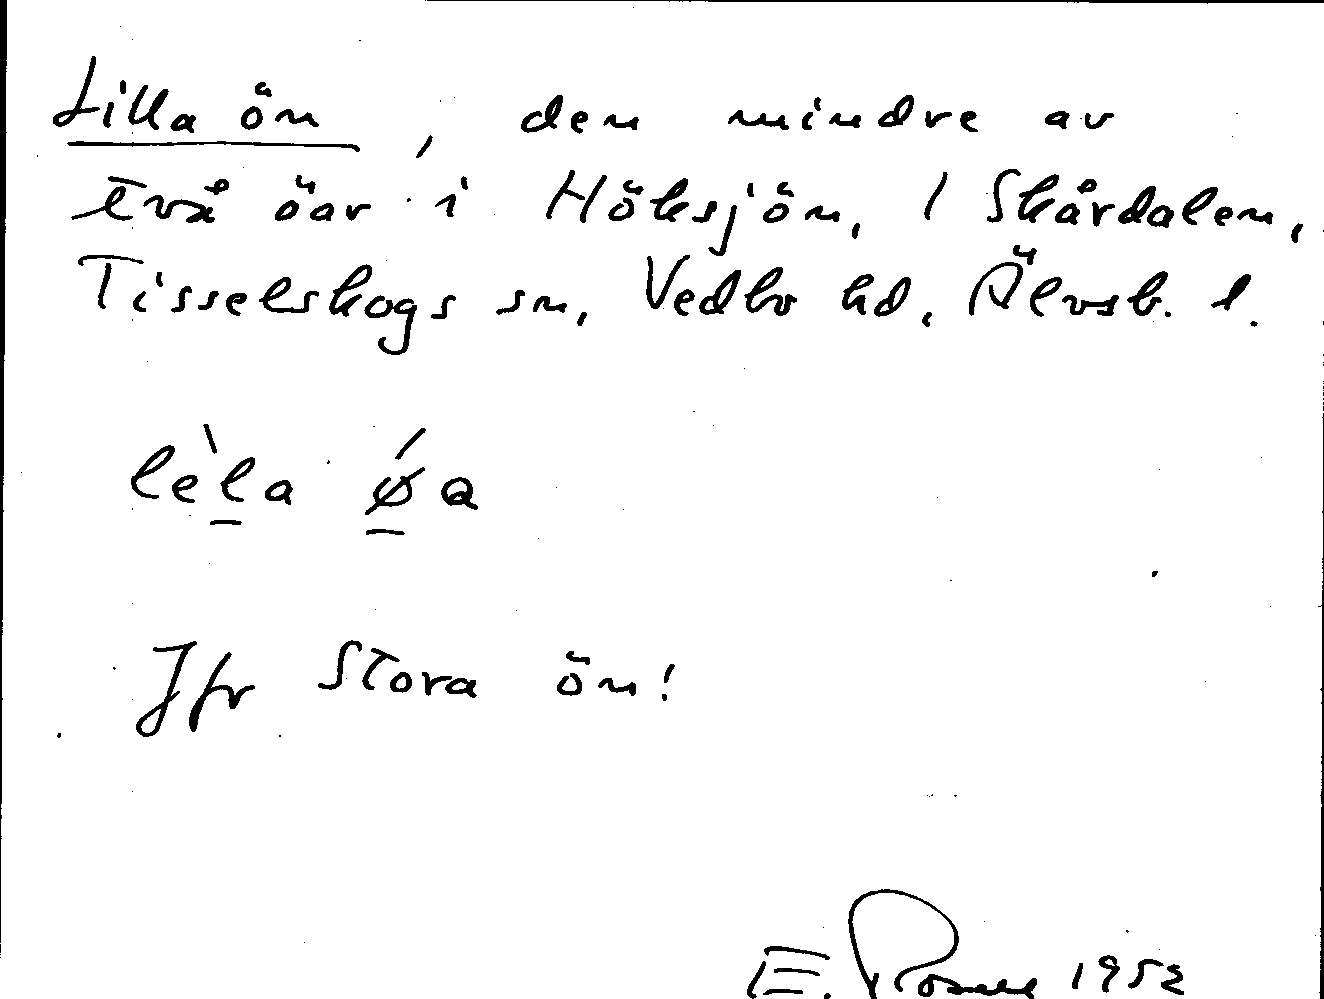 Lilla ön, den mindre av
två öar i Höksjön, / Skårdalen,
Tisselskogs sn, Vedbo hd, Älvsb. l.
lèla ǿa
Jfr Stora ön!
E. 1952